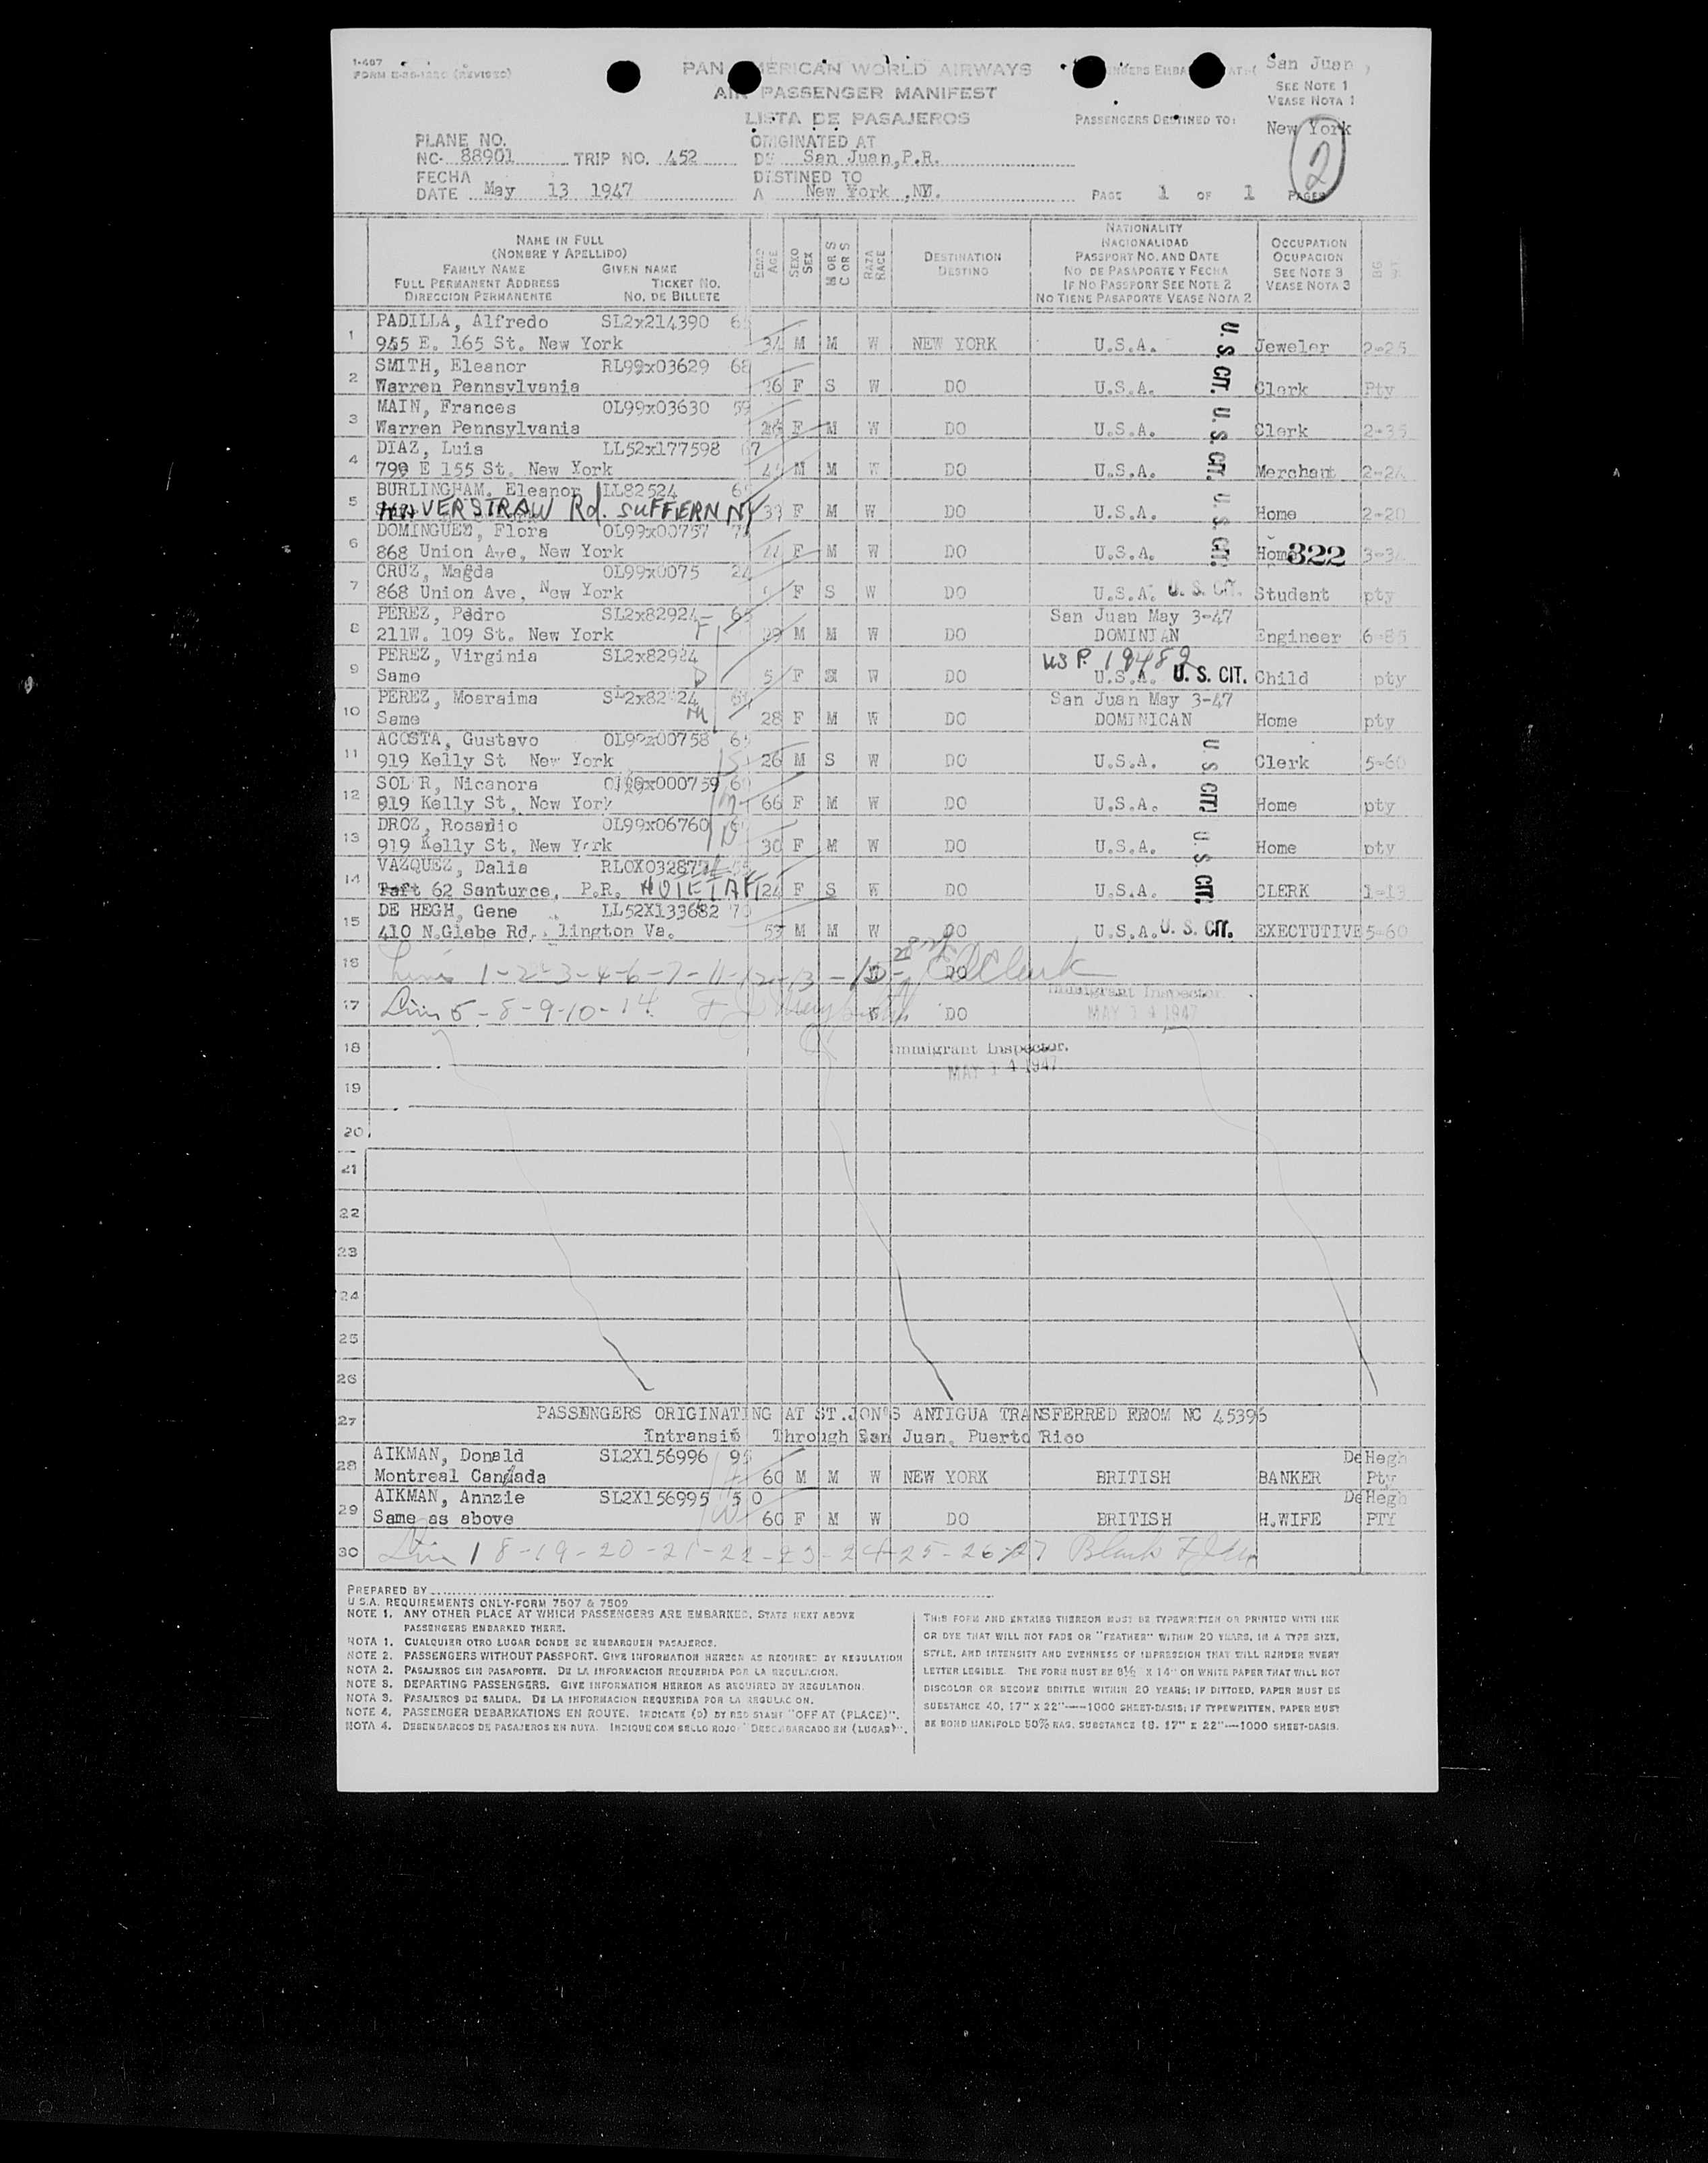 I-487
FORM E-30-1226 (REVISED)
PAN AMERICAN WORLD AIRWAYS
AIR PASSENGER MANIFEST
LISTA DE PASAJEROS
San Juan
SEE NOTE 1
VEASE NOTA 1
PASSENGERS DESTINED TO:
New York
2
PLANE NO.
NC- 88901 TRIP NO. 452
FECHA
DATE May 13 1947
ORIGINATED AT
DE San Juan,P.R.
DISTINED TO
A New York ,NY.
PAGE 1 OF 1 PAGES
NAME IN FULL
(NOMBRE Y APELLIDO)
FAMILY NAME GIVEN NAME
FULL PERMANENT ADDRESS TICKET NO.
DIRECCION PERMANENTE NO. DE BILLETE
EDAD AGE
SEXO SEX
M OR S C OR S
RAZA RACE
DESTINATION
DESTINO
NATIONALITY
NACIONALIDAD
PASSPORT NO. AND DATE
NO DE PASAPORTE Y FECHA
IF NO PASSPORT SEE NOTE 2
NO TIENE PASAPORTE VEASE NOTA 2
OCCUPATION
OCUPACION
SEE NOTE 3
VEASE NOTA 3
1 PADILLA, Alfredo SL2x214390
945 E. 165 St. New York 34 M M W NEW YORK U.S.A. U.S. CIT. Jeweler 2-25
2 SMITH, Eleanor RL99x03629 68
Warren Pennsylvania 26 F S W DO U.S.A. Clerk Pty
3 MAIN, Frances OL99x03630 59
Warren Pennsylvania F M W DO U.S.A. U.S. CIT. Clerk 2-35
4 DIAZ, Luis LL52x177598 67
790 E 155 St. New York M M W DO U.S.A. Merchant 2-24
5 BURLINGHAM. Eleanor LL82524
HAVERSTRAW Rd. SUFFERN NY 39 F M W DO U.S.A. U.S. CIT. Home 2-20
6 DOMINGUEZ, Flora OL99x00757
868 Union Ave, New York F M W DO U.S.A. Home 322 3-34
7 CRUZ, Magda OL99x0075 24
868 Union Ave, New York F S W DO U.S.A. U. S. CIT. Student pty
8 PEREZ, Pedro SL2x82924 F San Juan May 3-47
211W. 109 St. New York 29 M M W DO DOMINIAN Engineer 6-85
9 PEREZ, Virginia SL2x82924 US P. 19482
Same D 5 F W DO U.S.A. U. S. CIT. Child pty
10 PEREZ, Mosraima SL2x82924 San Juan May 3-47
Same M 28 F M W DO DOMINICAN Home pty
11 ACOSTA, Gustavo OL99x00758
919 Kelly St New York S 26 M S W DO U.S.A. U. S. CIT. Clerk 5-60
12 SOL R, Nicanora OL99x000759
919 Kelly St, New York M 66 F M W DO U.S.A. Home pty
13 DROZ, Rosario OL99x06760
919 Kelly St, New York D 30 F M W DO U.S.A. U. S. CIT. Home pty
14 VAZQUEZ, Dalia RLOX03287
Taft 62 Santurce, P.R. 24 F S W DO U.S.A. CLERK 1-13
15 DE HEGH, Gene LL52X133682 70
410 N.Glebe Rd, lington Va. 53 M M W DO U.S.A. U. S. CIT. EXECTUTIVE 5-60
16 Lines 1-2-3-4-6-7-11-12-13-15- DO Clark
Immigrant Inspector
17 Lines 5-8-9-10-14. DO MAY 14 1947
18 Immigrant Inspector.
MAY 14 1947
19
20
21
22
23
24
25
26
27 PASSENGERS ORIGINATING AT ST.JON'S ANTIGUA TRANSFERRED FROM NC 45395
Intransit Through San Juan, Puerto Rico
28 AIKMAN, Donald SL2X156996 95 DeHegh
Montreal Canada 60 M M W NEW YORK BRITISH BANKER Pty
29 AIKMAN, Annzie SL2X156995 50 DeHegh
Same as above W 60 F M W DO BRITISH H.WIFE PTY
30 Line 18-19-20-21-22-23-24-25-26-27 Blank
PREPARED BY
U.S.A. REQUIREMENTS ONLY-FORM 7507 & 7509
NOTE 1. ANY OTHER PLACE AT WHICH PASSENGERS ARE EMBARKED, STATE NEXT ABOVE
PASSENGERS EMBARKED THERE.
NOTA 1. CUALQUIER OTRO LUGAR DONDE SE EMBARQUEN PASAJEROS.
NOTE 2. PASSENGERS WITHOUT PASSPORT. GIVE INFORMATION HEREON AS REQUIRED BY REGULATION
NOTA 2. PASAJEROS SIN PASAPORTE. DE LA INFORMACION REQUERIDA POR LA REGULACION.
NOTE 3. DEPARTING PASSENGERS. GIVE INFORMATION HEREON AS REQUIRED BY REGULATION.
NOTA 3. PASAJEROS DE SALIDA. DE LA INFORMACION REQUERIDA POR LA REGULACION.
NOTE 4. PASSENGER DEBARKATIONS EN ROUTE. INDICATE (D) BY RED STAMP "OFF AT (PLACE)".
NOTA 4. DESEMBARCOS DE PASAJEROS EN RUTA. INDIQUE CON SELLO ROJO "DESEMBARCADO EN (LUGAR)".
THIS FORM AND ENTRIES THEREON MUST BE TYPEWRITTEN OR PRINTED WITH INK
OR DYE THAT WILL NOT FADE OR "FEATHER" WITHIN 20 YEARS, IN A TYPE SIZE,
STYLE, AND INTENSITY AND EVENNESS OF IMPRESSION THAT WILL RENDER EVERY
LETTER LEGIBLE. THE FORM MUST BE 8½ X 14" ON WHITE PAPER THAT WILL NOT
DISCOLOR OR BECOME BRITTLE WITHIN 20 YEARS; IF DITTOED, PAPER MUST BE
SUBSTANCE 40, 17" X 22"—1000 SHEET-BASIS; IF TYPEWRITTEN, PAPER MUST
BE BOND MANIFOLD 50% RAG, SUBSTANCE 18, 17" X 22"—1000 SHEET-BASIS.